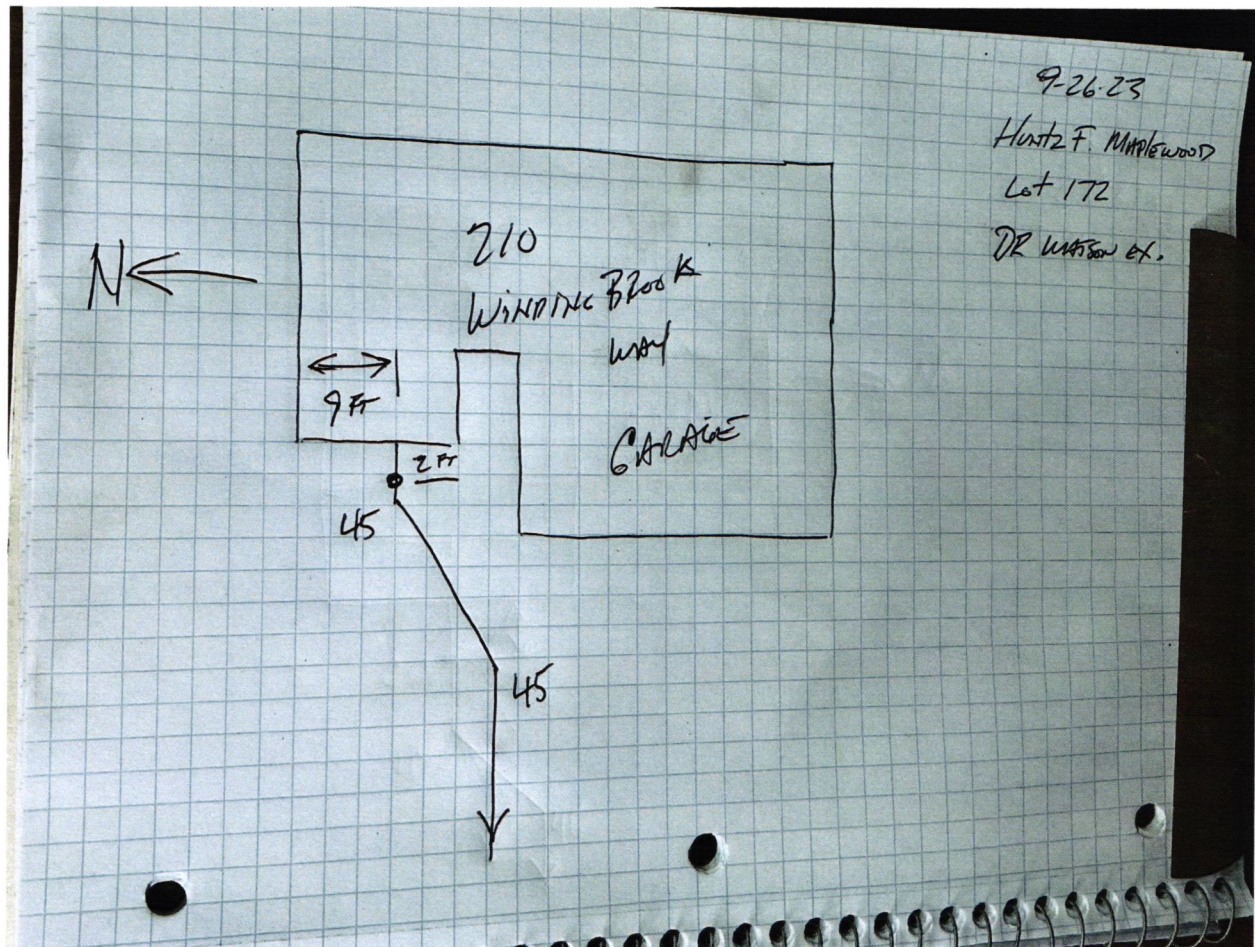 9-26-23
Huntz F. Maplewood
Lot 172
DR Watson ex.
N
210
Winding Brook
Way
9 FT
Garage
2 FT
45
45